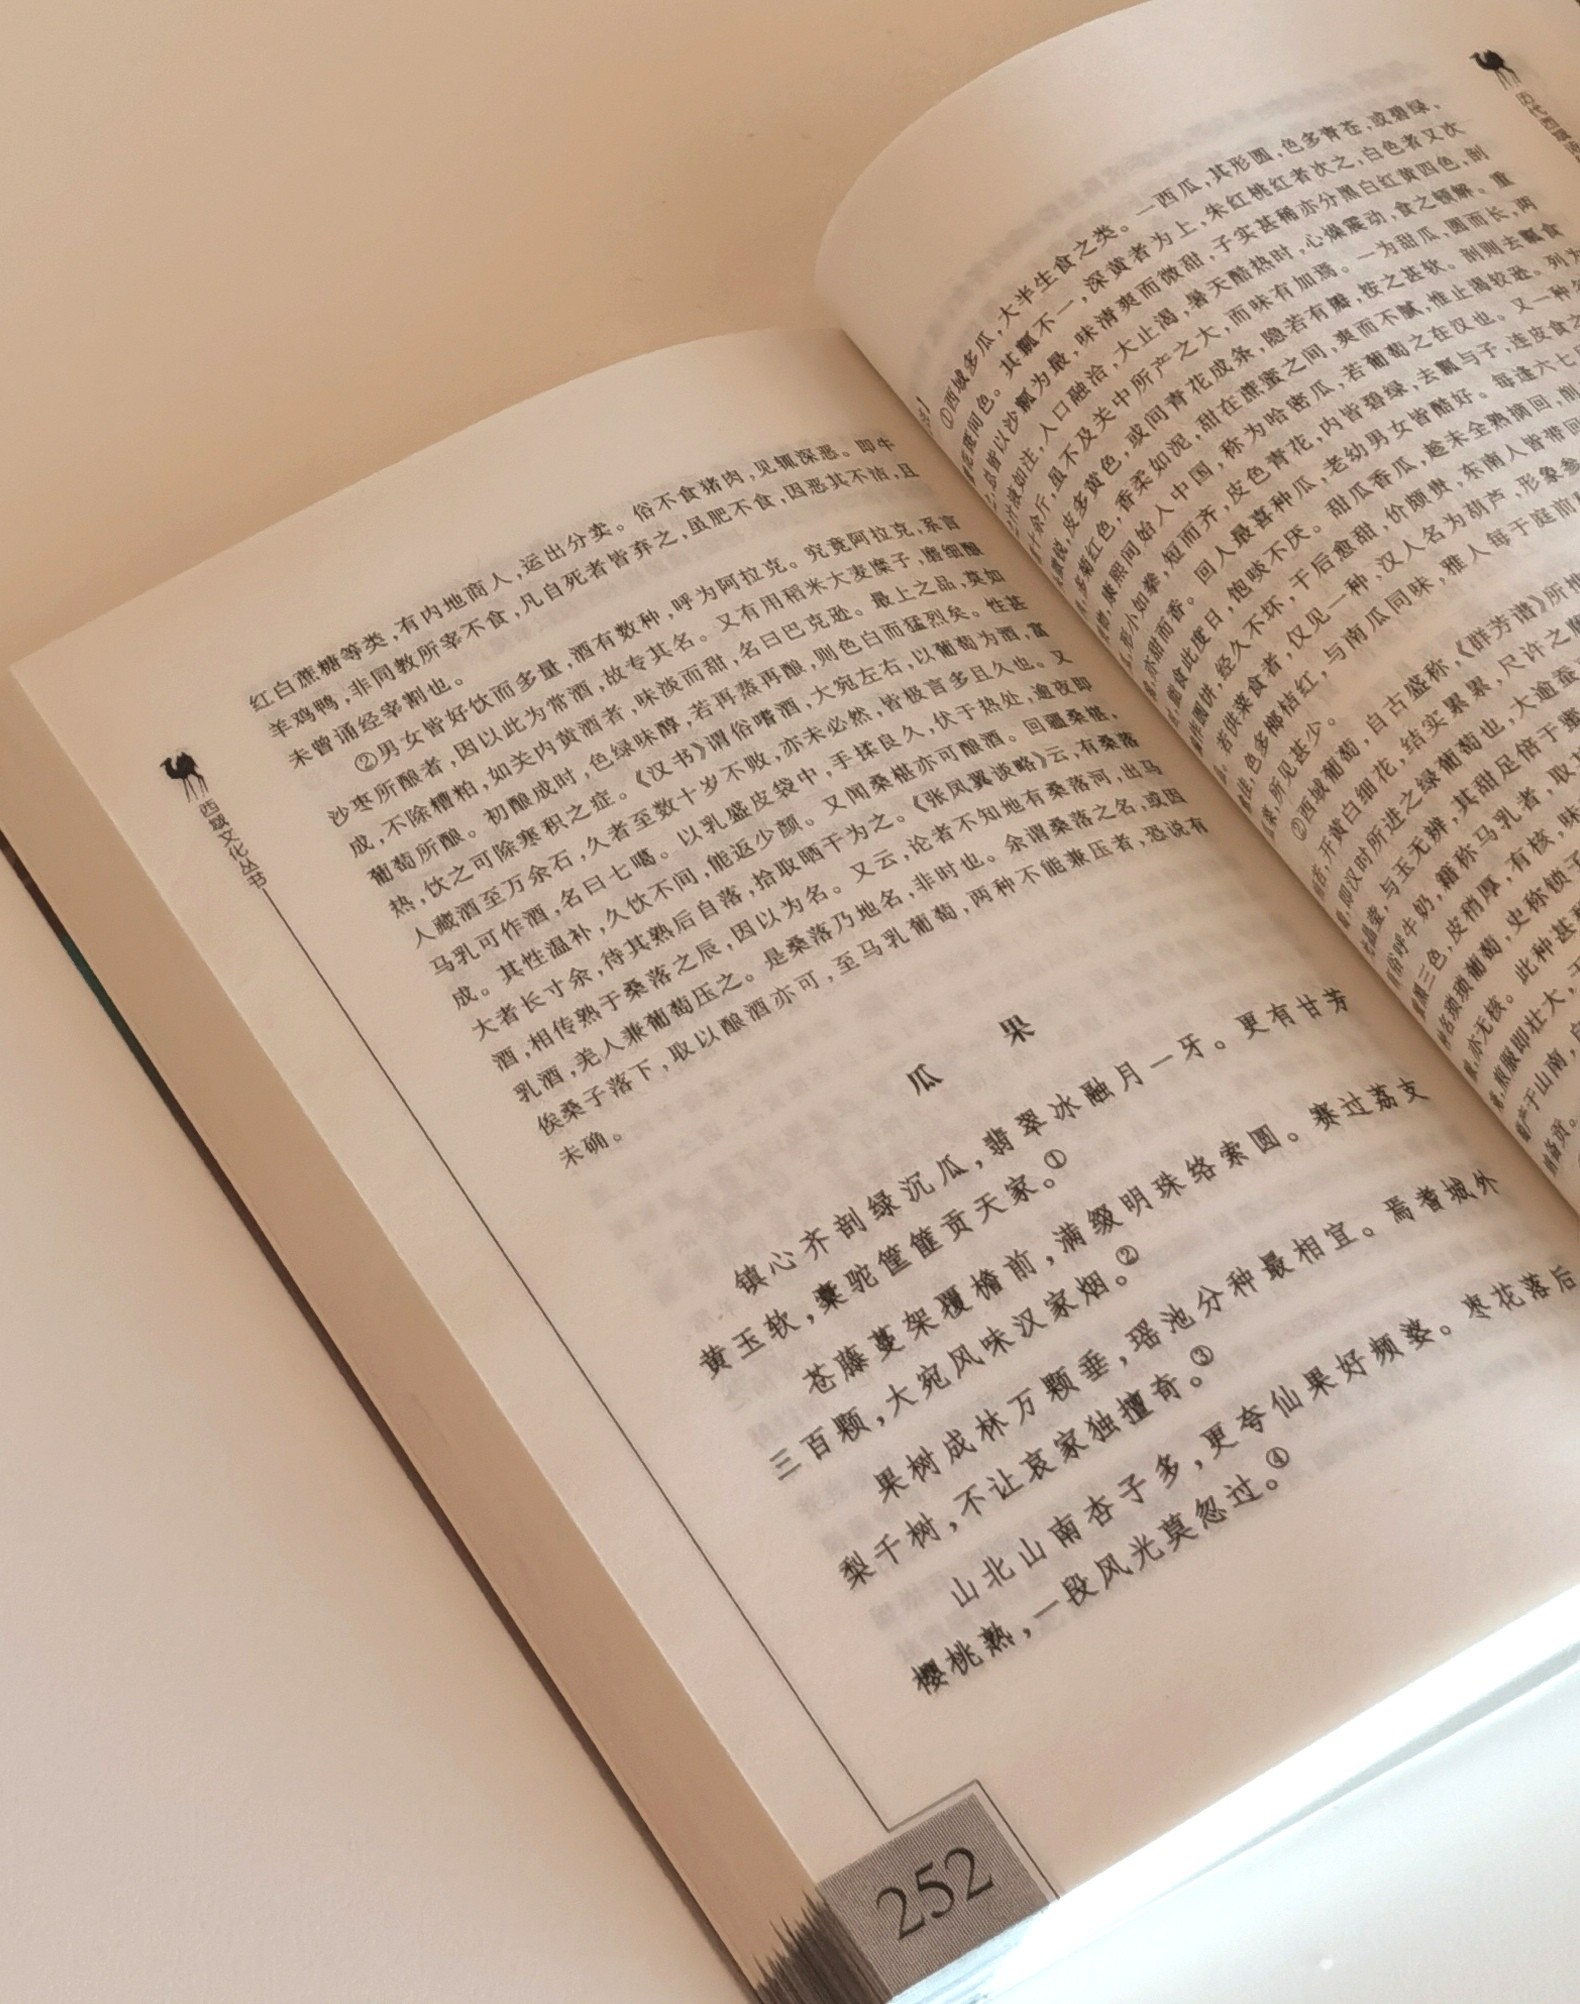 西域文化丛书
红白蔗糖等类,有内地商人,运出分卖。俗不食猪肉,见辄深恶。即牛
羊鸡鸭,非同教所宰不食,凡自死者皆弃之,虽肥不食,因恶其不洁,且
未曾诵经宰割也。
②男女皆好饮而多量,酒有数种,呼为阿拉克。究竟阿拉克,系言
沙枣所酿者,因以此为常酒,故专其名。又有用稻米大麦糜子,磨细酿
成,不除糟粕,如关内黄酒者,味淡而甜,名曰巴克逊。最上之品,莫如
葡萄所酿。初酿成时,色绿味醇,若再蒸再酿,则色白而猛烈矣。性甚
热,饮之可除寒积之症。《汉书》谓俗嗜酒,大宛左右,以葡萄为酒,富
人藏酒至万余石,久者至数十岁不败,亦未必然,皆极言多且久也。又
马乳可作酒,名曰七噶。以乳盛皮袋中,手揉良久,伏于热处,逾夜即
成。其性温补,久饮不间,能返少颜。又闻桑椹亦可酿酒。回疆桑椹,
大者长寸余,待其熟后自落,拾取晒干为之。《张凤翼谈略》云,有桑落
酒,相传熟于桑落之辰,因以为名。又云,论者不知地有桑落河,出马
乳酒,羌人兼葡萄压之。是桑落乃地名,非时也。余谓桑落之名,或因
俟桑子落下,取以酿酒亦可,至马乳葡萄,两种不能兼压者,恐说有
未确。
瓜 果
镇心齐剖绿沉瓜,翡翠冰融月一牙。更有甘芳
黄玉软,橐驼筐篚贡天家。①
苍藤蔓架覆檐前,满缀明珠络索圆。赛过荔支
三百颗,大宛风味汉家烟。②
果树成林万颗垂,瑶池分种最相宜。焉耆城外
梨千树,不让哀家独擅奇。③
山北山南杏子多,更夸仙果好频婆。枣花落后
樱桃熟,一段风光莫忽过。④
252
①西域多瓜,大半生食之类。一西瓜,其形圆,色多青苍,或碧绿,
间色。其瓤不一,深黄者为上,朱红桃红者次之,白色者又次
皆以沙瓤为最,味清爽而微甜,子实甚稀亦分黑白红黄四色,剖
如注,入口融洽,大止渴,暑天酷热时,心燥震动,食之顿解。重
十余斤,且不及关中所产之大,而味有加焉。一为甜瓜,圆而长,两
皮多黄色,或间青花成条,隐若有瓣,按之甚软。剖则去瓤食
多菊红色,香柔如泥,甜在蔗蜜之间,爽而不腻,惟止渴较逊。列为
康熙间始入中国,称为哈密瓜,若葡萄之在汉也。又一种
形小如拳,短而齐,皮色青花,内皆碧绿,去瓤与子,连皮食之
亦甜而香。回人最喜种瓜,老幼男女皆酷好。每逢六七月
食此度日,饱啖不厌。甜瓜香瓜,趁未全熟摘回,削
圆饼,经久不坏,干后愈甜,价颇贵,东南人皆带回
若供菜食者,仅见一种,汉人名为葫芦,形象参
色多郁桔红,与南瓜同味,雅人每于庭前
所见甚少。
②西域葡萄,自古盛称,《群芳谱》所
开黄白细花,结实累累,尺许之
即汉时所进之绿葡萄也,大逾蚕
与玉无辨,其甜足倍于蜜
俗呼牛奶,籍称马乳者,取其
黑三色,皮稍厚,有核,味
名琐琐葡萄,史称锁子
亦无核。此种甚
煎服即壮大,
产于山南,
备贡。